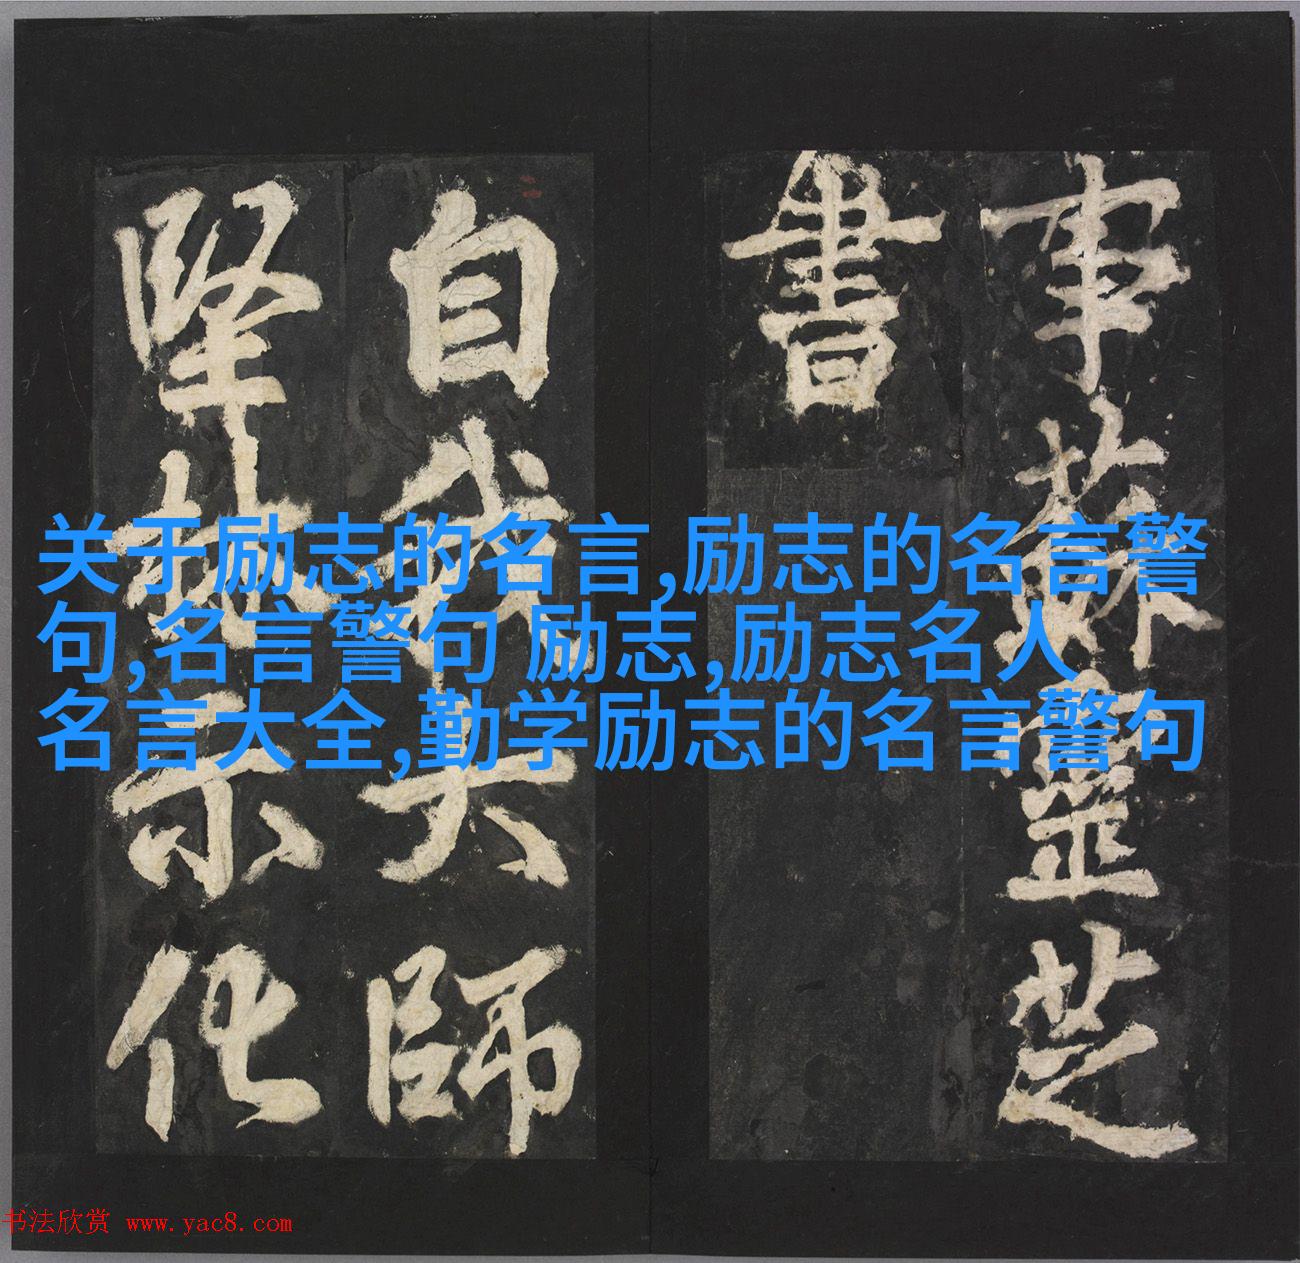 事蘇靈芝
書
自我大師
堅林示化
关于励志的名言,励志的名言警
句,名言警句 励志,励志名人
名言大全,勤学励志的名言警句
书法欣赏 www.yac8.com